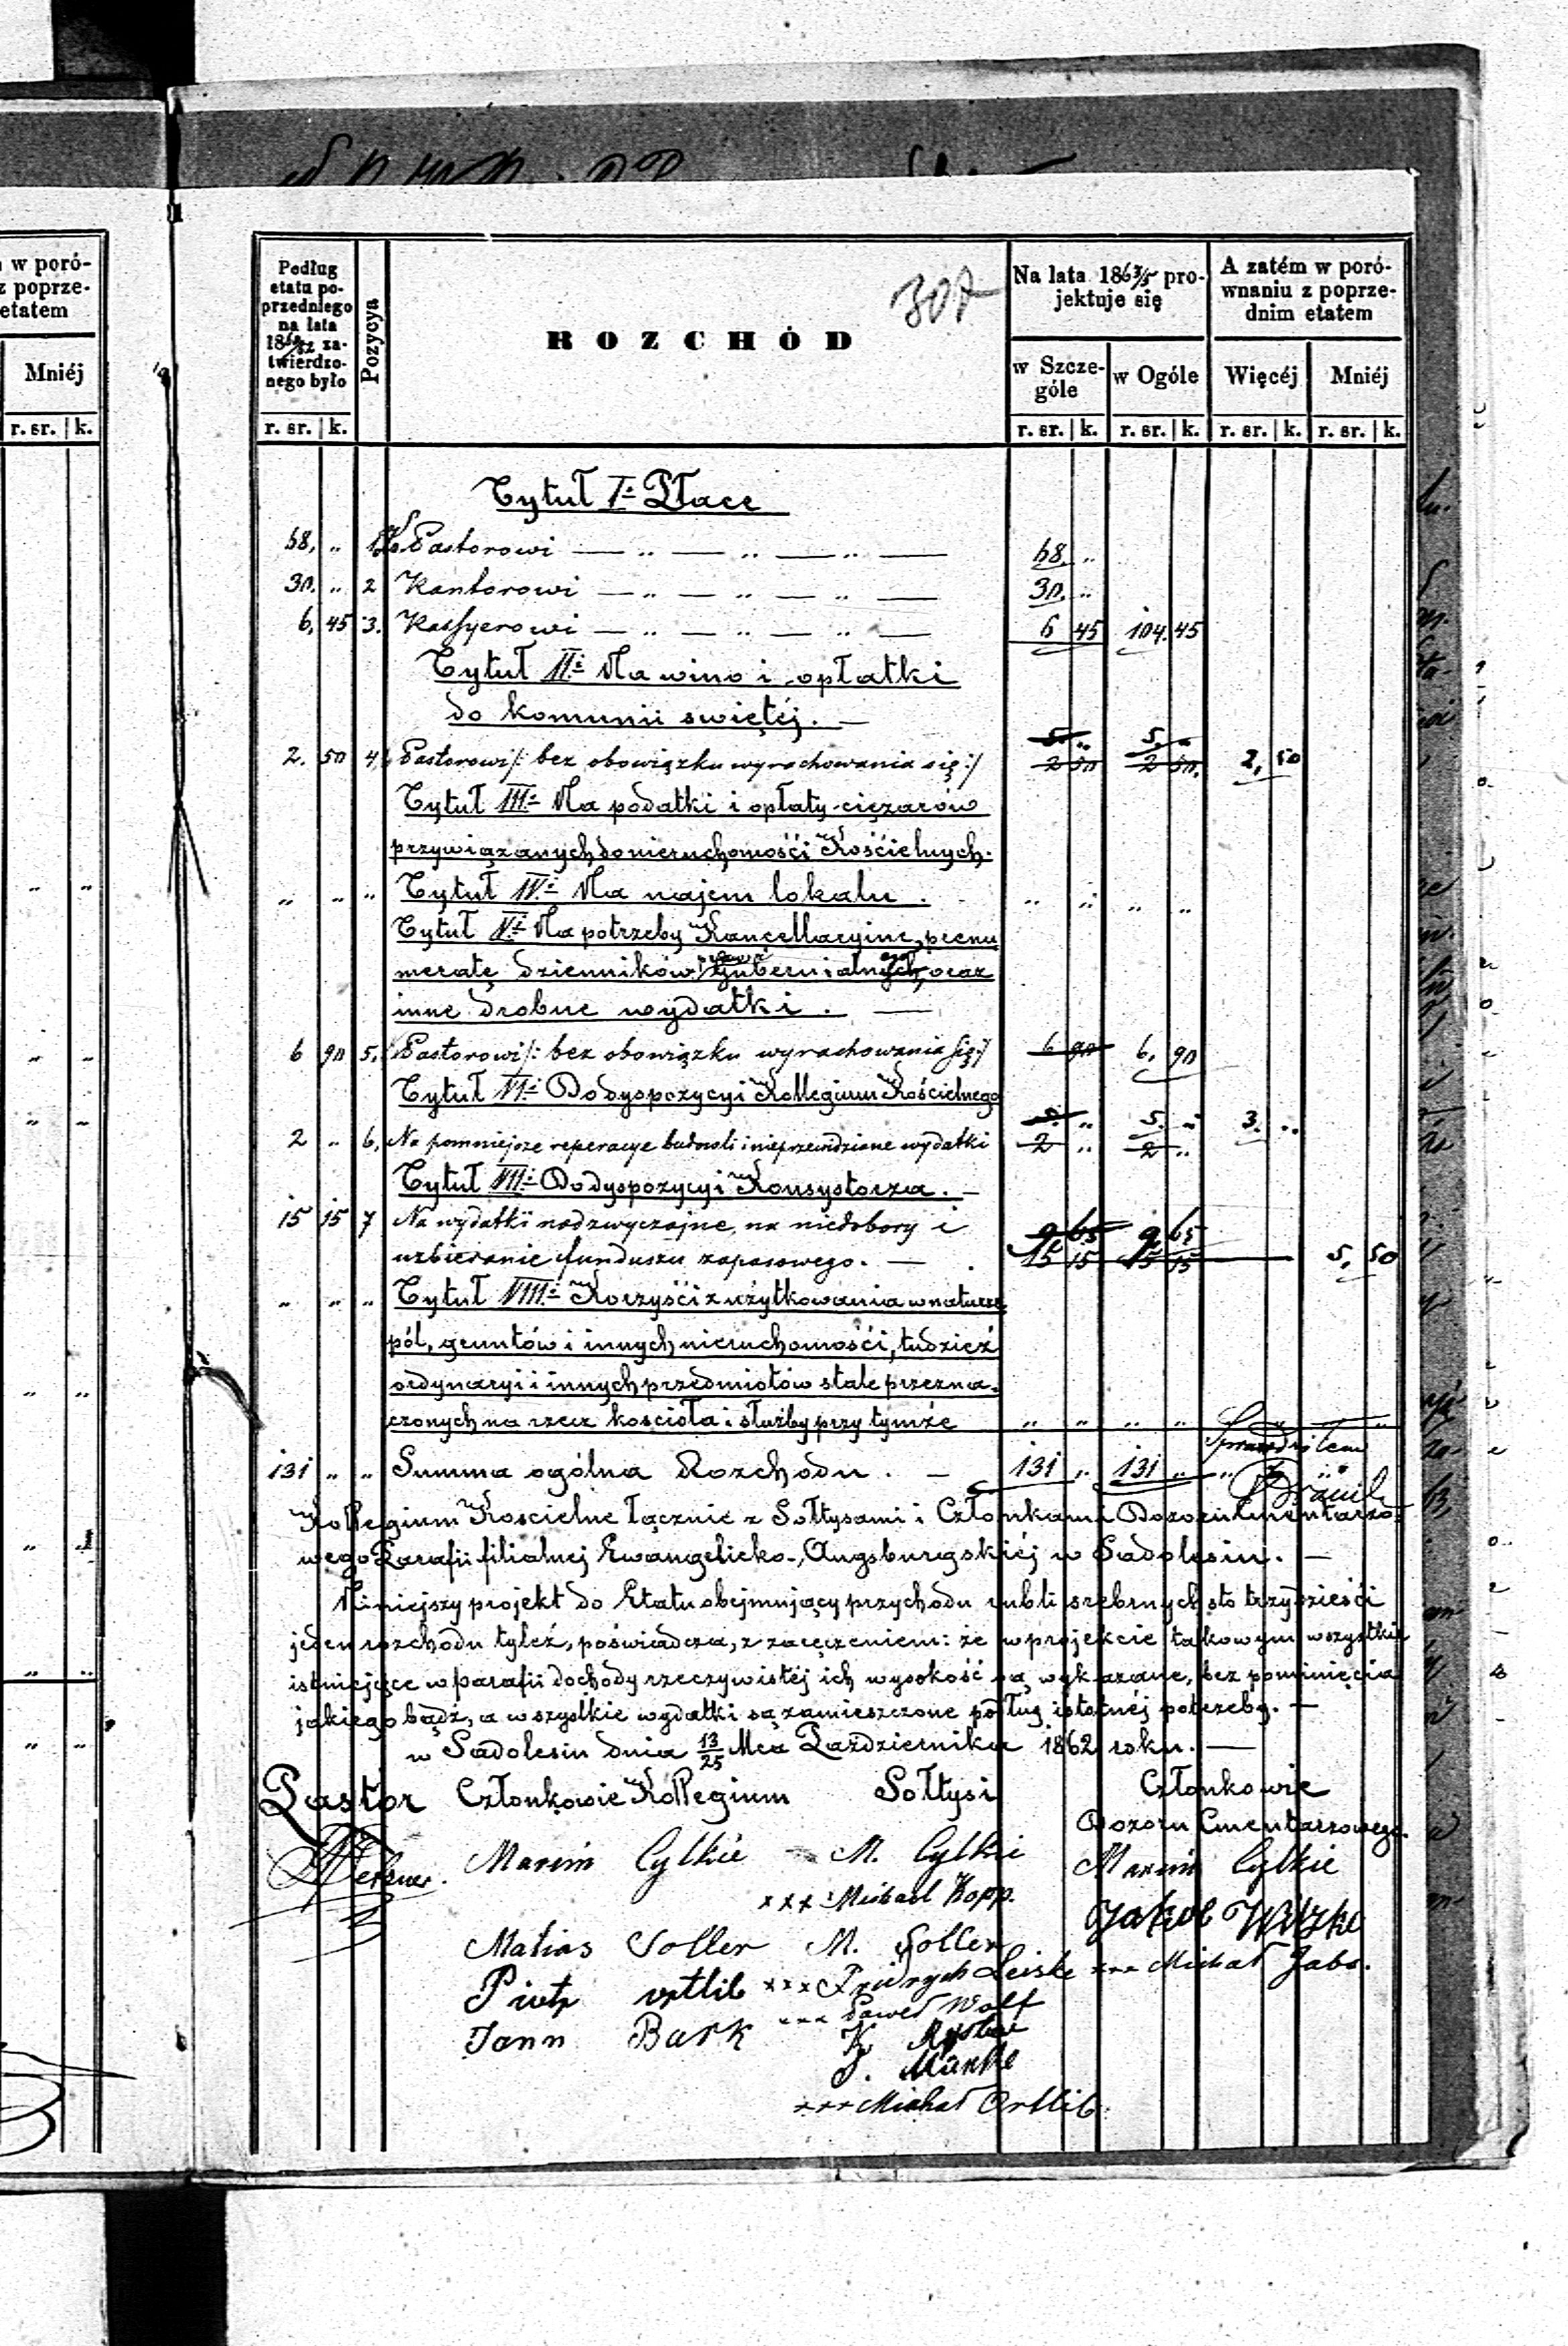 w poró-
z poprze-
etatem
Mniéj
r. sr. k.
307
Podług etatu poprzedniego na lata 1860/62 zatwierdzonego było
Pozycya
ROZCHÓD
Na lata 1863/5 projektuje się
A zatém w porównaniu z poprzednim etatem
w Szczególe w Ogóle Więcéj Mniéj
r. sr. k. r. sr. k. r. sr. k. r. sr. k. r. sr. k.
Tytuł I: Płace
68, „ 1 Pastorowi — „ — „ — „ — 68 „
30. „ 2 Kantorowi — „ — „ — „ — 30. „
6. 45 3. Kassyerowi — „ — „ — „ — 6 45 104. 45
Tytuł II: Na wino i opłatki
do komunii swiętéj. —
5. „ 5. „
2. 50 4. Pastorowi /: bez obowiązku wyrachowania się :/ 2 50 2 50. 2, 50
Tytuł III: Na podatki i opłaty ciężarów
przywiązanych do nieruchomośći Kośćielnych.
„ „ „ Tytuł IV: Na najem lokalu . „ „ „ „
Tytuł V: Na potrzeby Kancellaryine, prenu
meratę dzienników Gubernialnych, oraz
inne drobne wydatki . —
6 90 5. Pastorowi /: bez obowiązku wyrachowania się :/ 6 90 6. 90
Tytuł VI: Do dyspozycyi Kollegium Kościelnego
5. „ 5. „ 3. „
2 „ 6, Na pomniejsze reperacye budowli i nieprzewidziane wydatki 2 „ 2 „
Tytuł VII: Do dyspozycyi Konsystorza. —
15 15 7 Na wydatki nadzwyczajne, na niedobory i 9 65 9. 65
uzbieranie funduszu zapasowego. — 15 15 15 15 — 5, 50
„ „ „ Tytuł VIII: Korzyśći z użytkowania w naturze
pól, gruntów i innych nieruchomośći, tudzież
ordynaryi i innych przedmiotów stale przezna-
czonych na rzecz kościoła i służby przy tymże „ „ „ „ „ „
Sprawdziłem
131 „ „ Summa ogólna Rozchodu . — 131 „ 131 „ „ „
Kollegium Kościelne łącznie z Sołtysami i Członkami Dozoru Cmentarzo-
wego Parafii filialnej Ewangelicko-Augsburgskiéj w Sadolesiu. —
Niniejszy projekt do Etatu obejmujący przychodu rubli srebrnych sto trzydzieśći
jeden rozchodu tyleż, poświadcza, z zaręczeniem: że w projekcie takowym wszystkie
istniejące w parafii dochody rzeczywistéj ich wysokość są wykazane, bez pominięcia
jakiego bądź, a wszystkie wydatki są zamieszczone podług istotnéj potrzeby. —
w Sadolesiu dnia 13/25 Mca Października 1862 roku. —
Pastor Członkowie Kollegium Sołtysi Członkowie
Dozoru Cmentarzowego.
Marcin Cylkie M. Cylkie Marcin Cylkie
xxx Michael Kopp.
Jakob Witzke
Matias Soller M. Soller
xxx Fridrych Leiske xxx Michał Jabs.
Piotr ortlib
xxx Paweł Wolf
Jann Bark
J. Manke
xxx Michał Ortlib